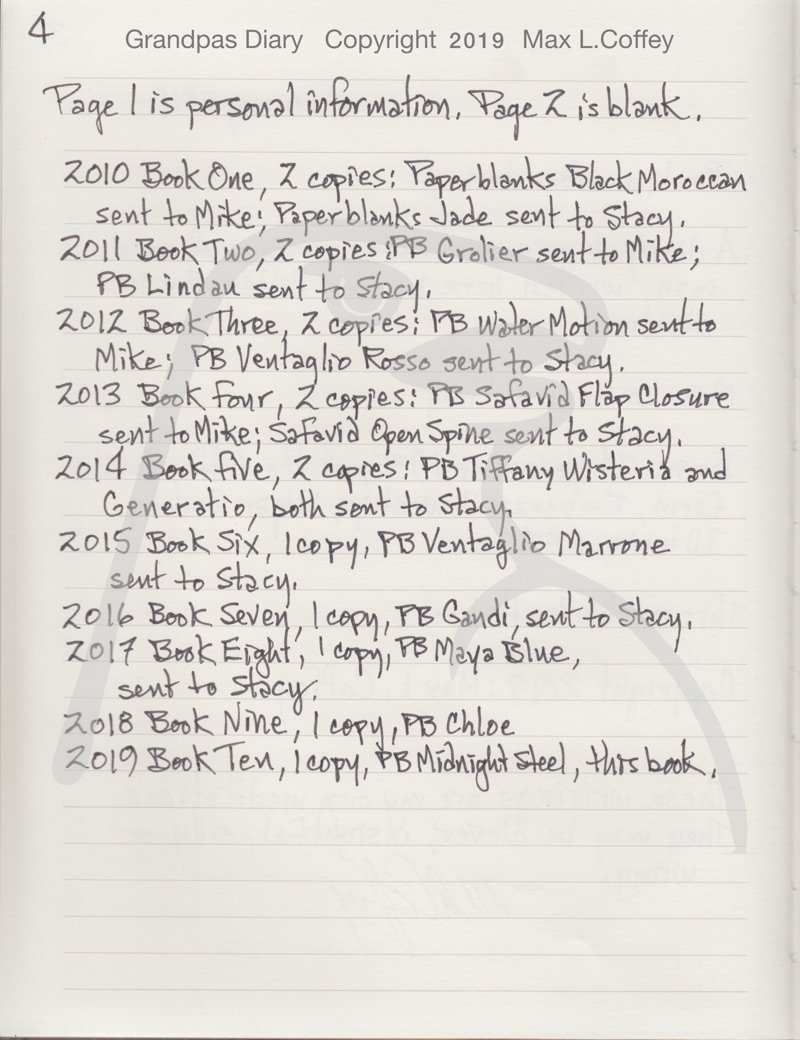 4
Grandpas Diary Copyright 2019 Max L.Coffey
Page 1 is personal information. Page 2 is blank.
2010 Book One, 2 copies: Paperblanks Black Moroccan
sent to Mike; Paperblanks Jade sent to Stacy.
2011 Book Two, 2 copies: PB Grolier sent to Mike;
PB Lindau sent to Stacy.
2012 Book Three, 2 copies: PB Water Motion sent to
Mike; PB Ventaglio Rosso sent to Stacy.
2013 Book four, 2 copies: PB Safavid Flap Closure
sent to Mike; Safavid Open Spine sent to Stacy.
2014 Book five, 2 copies: PB Tiffany Wisteria and
Generatio, both sent to Stacy.
2015 Book Six, 1 copy, PB Ventaglio Marrone
sent to Stacy.
2016 Book Seven, 1 copy, PB Gandi, sent to Stacy.
2017 Book Eight, 1 copy, PB Maya Blue,
sent to Stacy.
2018 Book Nine, 1 copy, PB Chloe
2019 Book Ten, 1 copy, PB Midnight Steel, this book.